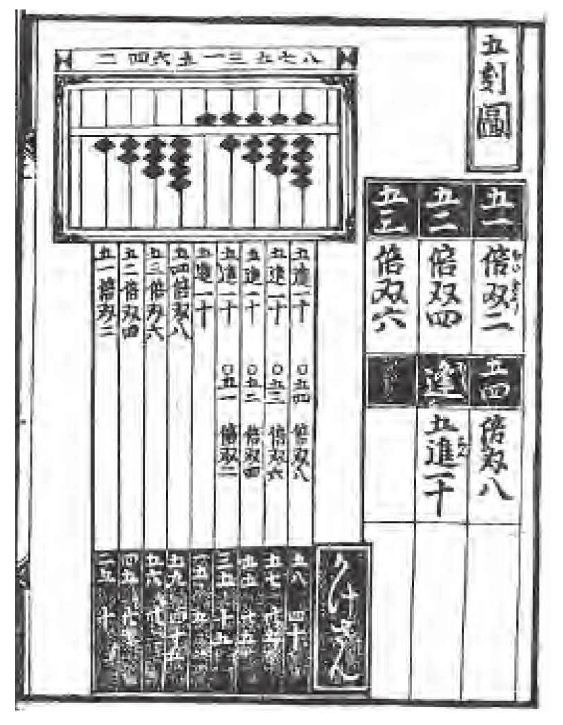 五割圖
五一
倍双二
五二
倍双四
五三
倍双六
五四
倍双八
逢
五進一十
二四六五一三五七八
五進一十 〇五四 倍双八
五進一十 〇五三 倍双六
五進一十 〇五二 倍双四
五進一十 〇五一 倍双二
五進一十
五四倍双八
五三倍双六
五二倍双四
五一倍双二
かけざん
五八 四十
五七
三五 十五
五六
二五 十